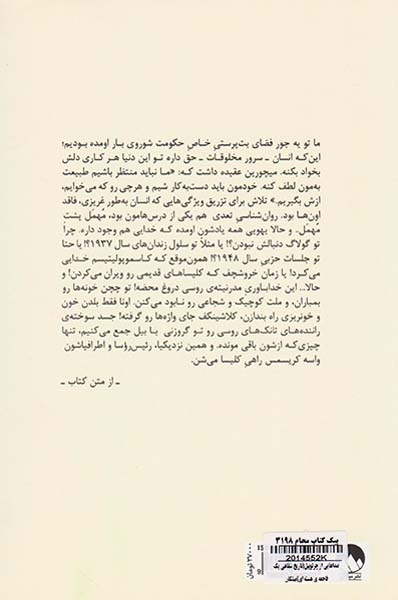 ما تو یه جور فضای بت‌پرستیِ خاصِ حکومت شوروی بار اومده بودیم؛
این‌که انسان ـ سرور مخلوقات ـ حق داره تو این دنیا هر کاری دلش
بخواد بکنه. میچورین عقیده داشت که: «ما نباید منتظر باشیم طبیعت
بهمون لطف کنه. خودمون باید دست‌به‌کار شیم و هرچی رو که می‌خوایم،
ازش بگیریم.» تلاش برای تزریق ویژگی‌هایی که انسان به‌طور غریزی، فاقد
اون‌ها بود. روان‌شناسیِ تعدی هم یکی از درس‌هامون بود، مهمل پشت
مهمل. و حالا یهویی همه یادشون اومده که خدایی هم وجود داره. چرا
تو گولاگ دنبالش نبودن؟! یا مثلاً تو سلول زندان‌های سال ۱۹۳۷؟! یا حتا
تو جلسات حزبی سال ۱۹۴۸؟! همون‌موقع که کاسموپولیتیسم خدایی
می‌کرد! یا زمان خروشچف که کلیساهای قدیمی رو ویران می‌کردن! و
حالا... این خداباوریِ مدرنیته‌ی روسی دروغ محضه! تو چچن خونه‌ها رو
بمباران، و ملت کوچیک و شجاعی رو نابود می‌کنن. اونا فقط بلدن خون
و خونریزی راه بندازن، کلاشینکف جای واژه‌ها رو گرفته! جسد سوخته‌ی
راننده‌های تانک‌های روسی رو تو گروزنی با بیل جمع می‌کنیم، تنها
چیزی‌که ازشون باقی مونده. و همین نزدیکیا، رئیس‌رؤسا و اطرافیاشون
واسه کریسمس راهیِ کلیسا می‌شن.
ـ از متن کتاب ـ
۳۷۰۰۰ تومان
پیک کتاب محام ۳۱۹۸
2014552K